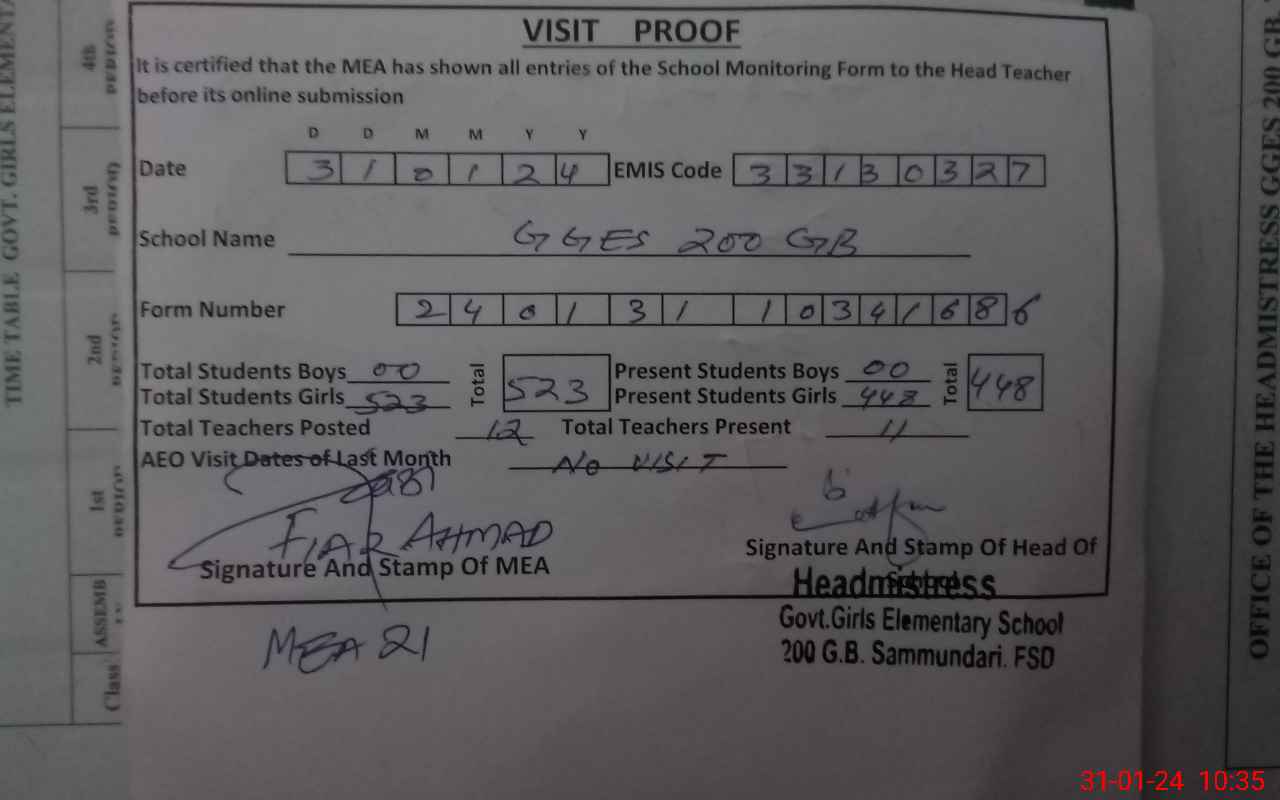 VISIT PROOF
It is certified that the MEA has shown all entries of the School Monitoring Form to the Head Teacher
before its online submission
D D M M Y Y
Date 3 1 0 1 2 4 EMIS Code 3 3 1 3 0 3 2 7
School Name GGES 200 GB
Form Number 2 4 0 1 3 1 1 0 3 4 1 6 8 6
Total Students Boys 00 Total 523 Present Students Boys 00 Total 448
Total Students Girls 523 Present Students Girls 448
Total Teachers Posted 12 Total Teachers Present 11
AEO Visit Dates of Last Month NO VISIT
AHMAD
Signature And Stamp Of MEA
Signature And Stamp Of Head Of
School
Headmistress
Govt.Girls Elementary School
200 G.B. Sammundari. FSD
MEA 21
TIME TABLE GOVT. GIRLS
4th PERIOD
3rd PERIOD
2nd PERIOD
1st PERIOD
ASSEMB
Class
OFFICE OF THE HEADMISTRESS GGES 200 GB
31-01-24 10:35